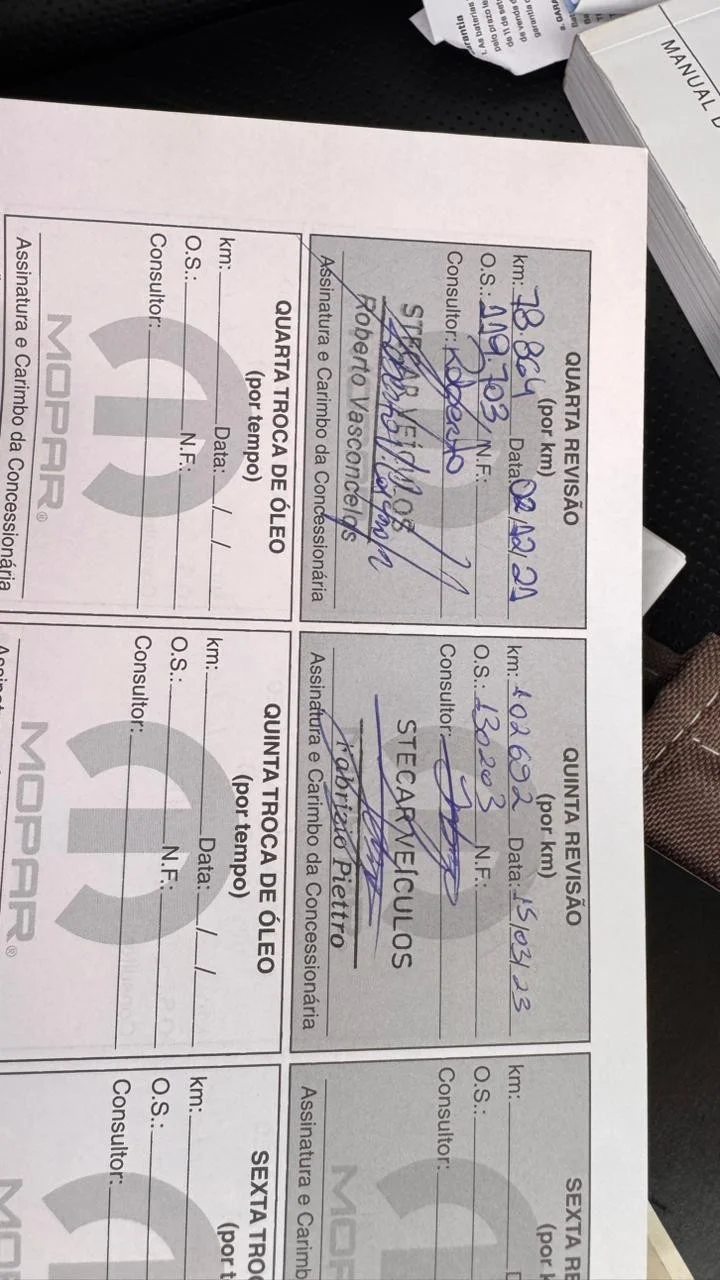 QUARTA REVISÃO
(por km)
km: 78.864 Data: 02/12/21
O.S.: 119703 N.F.:
Consultor: Roberto
STECAR VEÍCULOS
Roberto Vasconcelos
Assinatura e Carimbo da Concessionária
QUINTA REVISÃO
(por km)
km: 102692 Data: 15/03/23
O.S.: 130203 N.F.:
Consultor:
STECAR VEÍCULOS
Fabrizio Piettro
Assinatura e Carimbo da Concessionária
SEXTA RE
(por k
km:
O.S.:
Consultor:
MOP
Assinatura e Carimb
QUARTA TROCA DE ÓLEO
(por tempo)
km: Data: / /
O.S.: N.F.:
Consultor:
MOPAR®
Assinatura e Carimbo da Concessionária
QUINTA TROCA DE ÓLEO
(por tempo)
km: Data: / /
O.S.: N.F.:
Consultor:
MOPAR®
SEXTA TROC
(por t
km:
O.S.:
Consultor:
MANUAL D
arantia
1. As baterias
pelo prazo le
de 11 de sete
de venda
garantia
• GARA